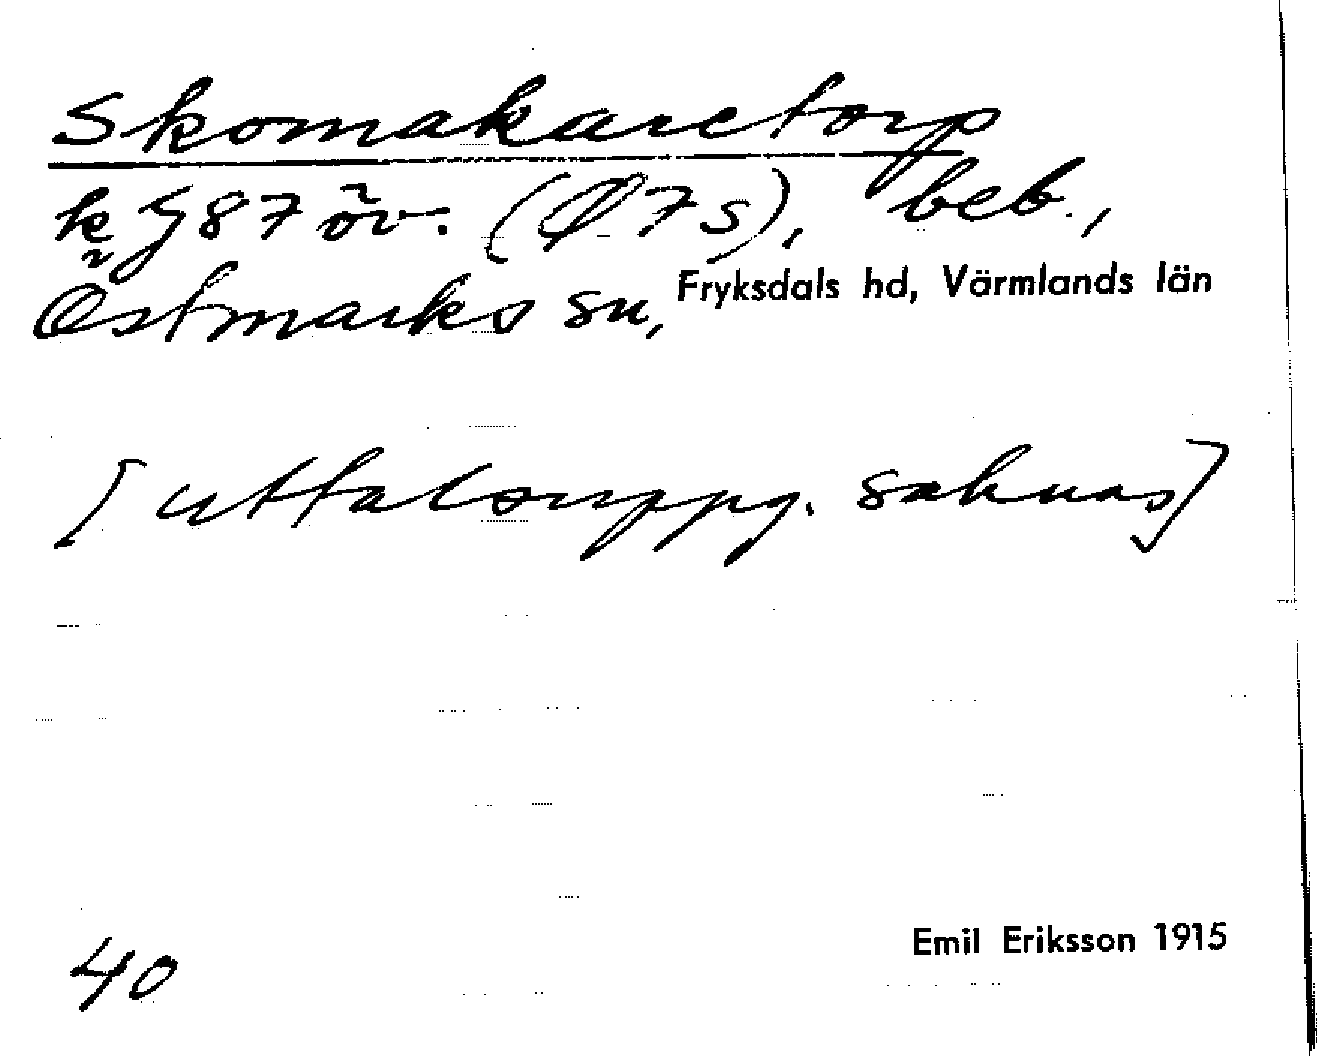 Skomakaretorp
k 87 öv. (Ø 7 S), beb.,
Östmarks sn, Fryksdals hd, Värmlands län
[uttalsuppg. saknas]
40
Emil Eriksson 1915